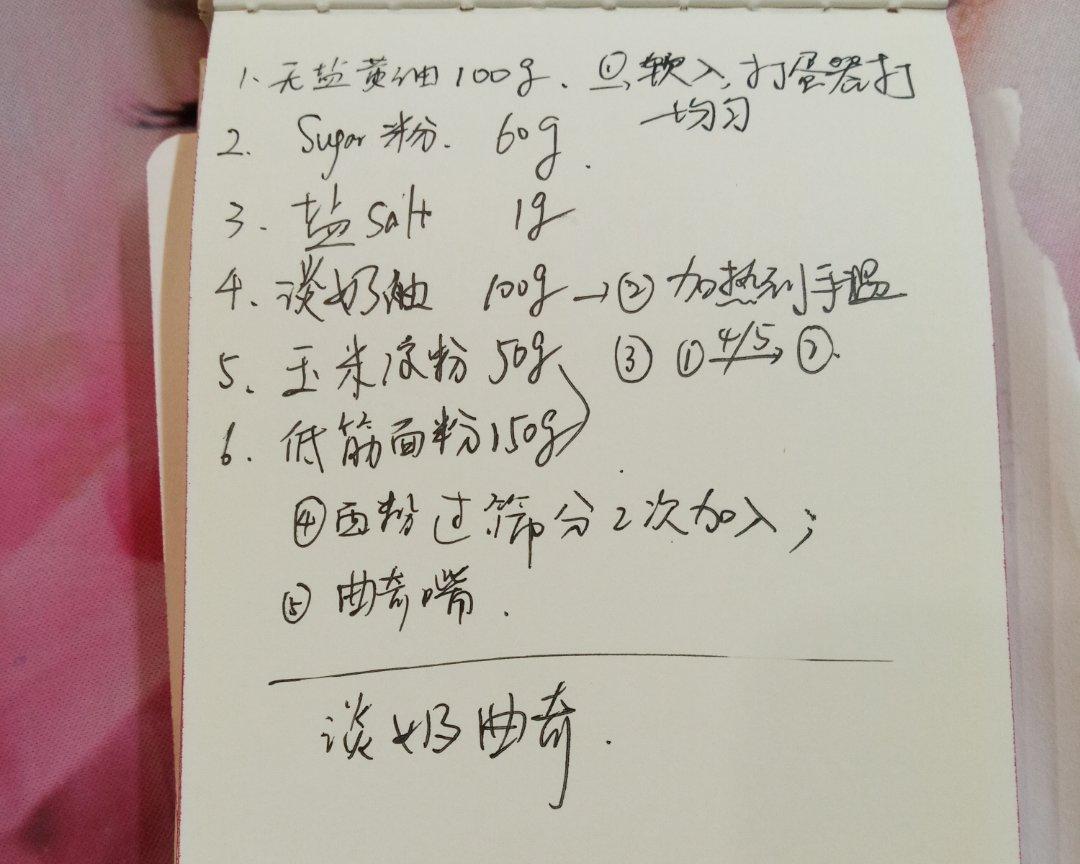 1. 无盐黄油 100g. ① 软入, 打蛋器打
均匀
2. Sugar 粉. 60g.
3. 盐 Salt 1g
4. 淡奶油 100g → ② 加热到手温
5. 玉米淀粉 50g ③ ① 4/5→ ②.
6. 低筋面粉 150g
④ 面粉过筛分2次加入;
⑤ 曲奇嘴.
淡奶曲奇.